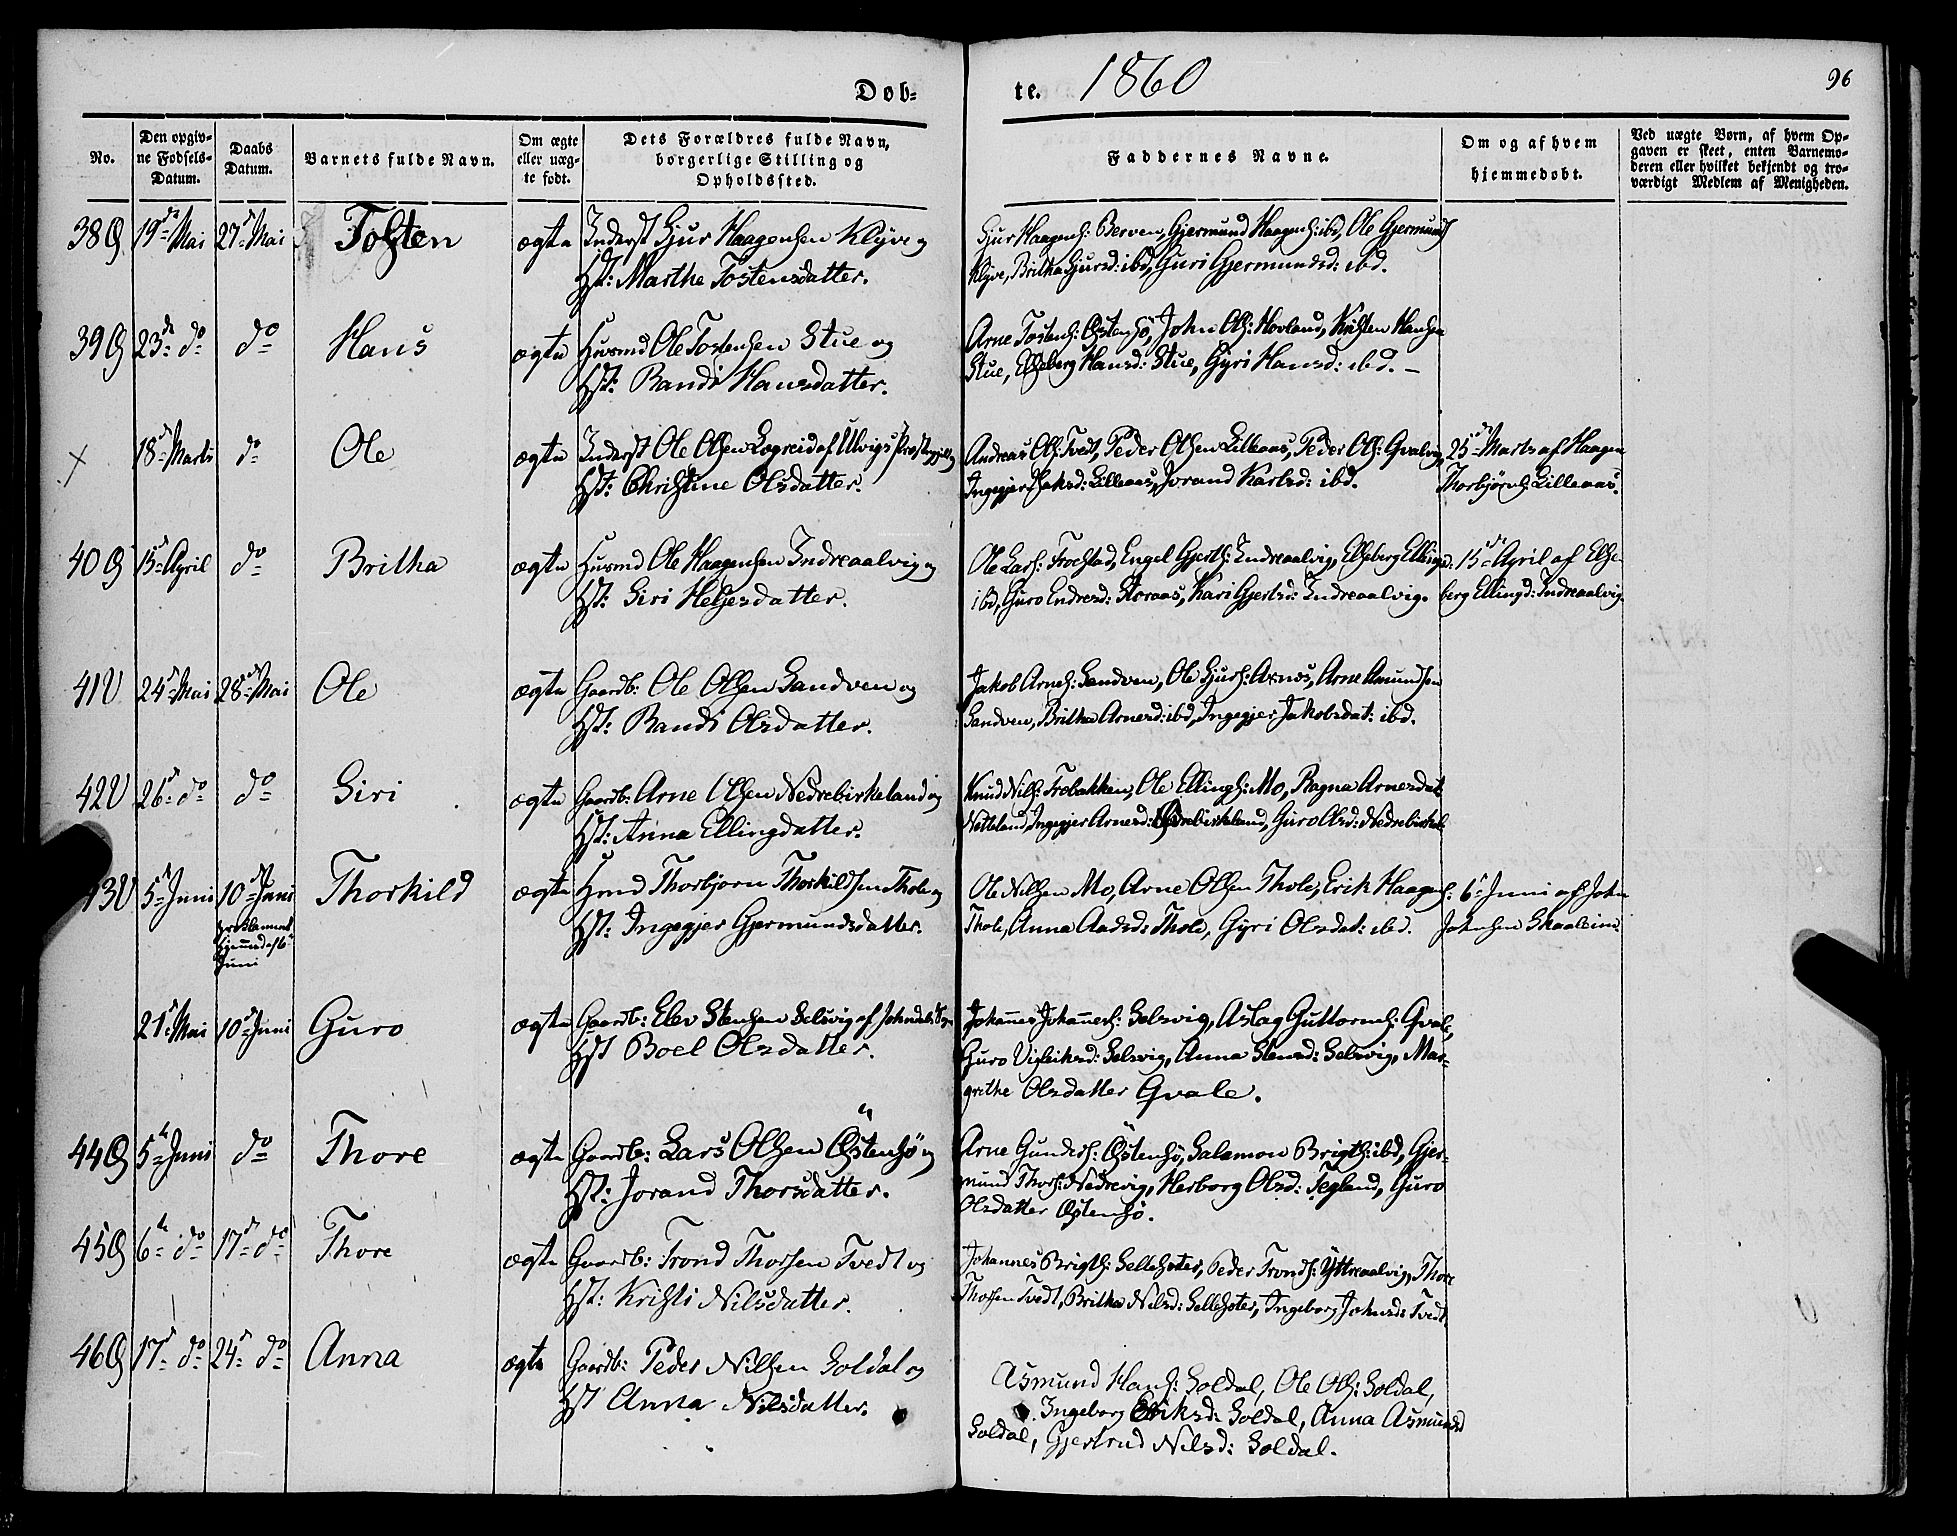 Døb-
te. 1860
96
No.
Den opgiv-
ne Fødsels-
Datum.
Daabs
Datum.
Barnets fulde Navn.
Om ægte
eller uæg-
te født.
Dets Forældres fulde Navn,
borgerlige Stilling og
Opholdssted.
Faddernes Navne.
Om og af hvem
hjemmedøbt.
Ved uægte Børn, af hvem Op-
gaven er skeet, enten Barnemo-
deren eller hvilket bekjendt og tro-
værdigt Medlem af Menigheden.
38 19de Mai 27d Mai Tosten ægte Inderst Sjur Haagensen Klyve og
Hst: Marthe Tostensdatter.
Sjur Haagens: Berven, Gjermund Haagens: ibd, Ole Gjermunds
Klyve, Britha Sjursd: ibd, Guri Gjermundsd: ibd.
39 23de do do Hans ægte Husmd Ole Tostensen Stue og
Hst: Randi Hansdatter.
Arne Tostens: Østensø, John Ols: Hovland, Kristen Hansen
Stue, Elseberg Hansd: Stue, Gyri Hansd: ibd. –
× 18d Marts do Ole ægte Inderst Ole Olsen Legreid af Ulvigs Præstegjeld og
Hst: Christine Olsdatter.
Andreas Ols: Tvedt, Peder Olsen Lilleaas, Peder Ols: Gvalvig,
Ingegjer Isaksd: Lilleaas, Jorand Karlsd: ibd.
25de Marts af Haagen
Thorbjørns: Lilleaas.
40 15d April do Britha ægte Husmd Ole Haagensen Indreaalvig og
Hst: Siri Helgesdatter.
Ole Lars: Trohstad, Engel Gjerts: Indreaalvig, Elseberg Ellingsd:
ibd, Guro Endresd: Storaas, Kari Gjertsd: Indreaalvig.
15de April af Else-
berg Ellingd: Indreaalvig.
41 24d Mai 28de Mai Ole ægte Gaardb: Ole Olsen Sandven og
Hst: Randi Olsdatter.
Jakob Arnes: Sandven, Ole Sjurs: Axnes, Arne Amundsen
Sandven, Britha Arnesd: ibd, Ingegjer Jakobsdat: ibd.
42 26d do do Siri ægte Gaardb: Arne Olsen Nedrebirkeland og
Hst: Anna Ellingdatter.
Knud Nils: Trobakken, Ole Ellings: Mo, Ragna Arnesdat
Netteland, Ingegjer Arnesd: Øvrebirkeland, Guro Olsd: Nedrebirkel.
43 5d Juni 10de Juni Thorkild ægte Hmd Thorbjørn Thorkildsen Thole og
Juni
Hst: Ingegjer Gjermundsdatter.
Ole Nilsen Mo, Arne Olsen Thole, Erik Haagens:
Thole, Anna Aadsd: Thole, Gyri Olsdat: ibd.
6d Juni af John
Johnsen Skaaleim
21d Mai 10d Juni Guro ægte Gaardb: Elev Stensen Selsvig af Jondals
Hst Boel Olsdatter.
Johannes Johannes: Selsvig, Aslag Guttorms: Qvale,
Guro Vigleiksd: Selsvig, Anna Stensd: Selsvig, Mar-
grethe Olsdatter Qvale.
44 5te Juni do Thore ægte Gaardb: Lars Olsen Østensø og
Hst: Jorand Thorsdatter.
Arne Gunders: Østensø, Salamon Brigts: ibd, Gjer-
mund Thors: Nedrevig, Herborg Olsd: Tegland, Guro
Olsdatter Østensø.
45 6te do 17d do Thore ægte Gaardb: Trond Thorsen Tvedt og
Hst: Kristi Nilsdatter.
Johannes Brigts: Sellesæter, Peder Tronds: Yttreaalvig, Thore
Thorsen Tvedt, Britha Nilsd: Sellesæter, Ingeborg Johnsd: Tvedt.
46 17d do 24d do Anna ægte Gaardb: Peder Nilsen Soldal og
Hst Anna Nilsdatter.
Asmund Hans: Soldal, Ole Ols: Soldal,
Ingeborg Eriksd: Soldal, Anna Asmundsd
Soldal, Gjertrud Nilsd: Soldal.